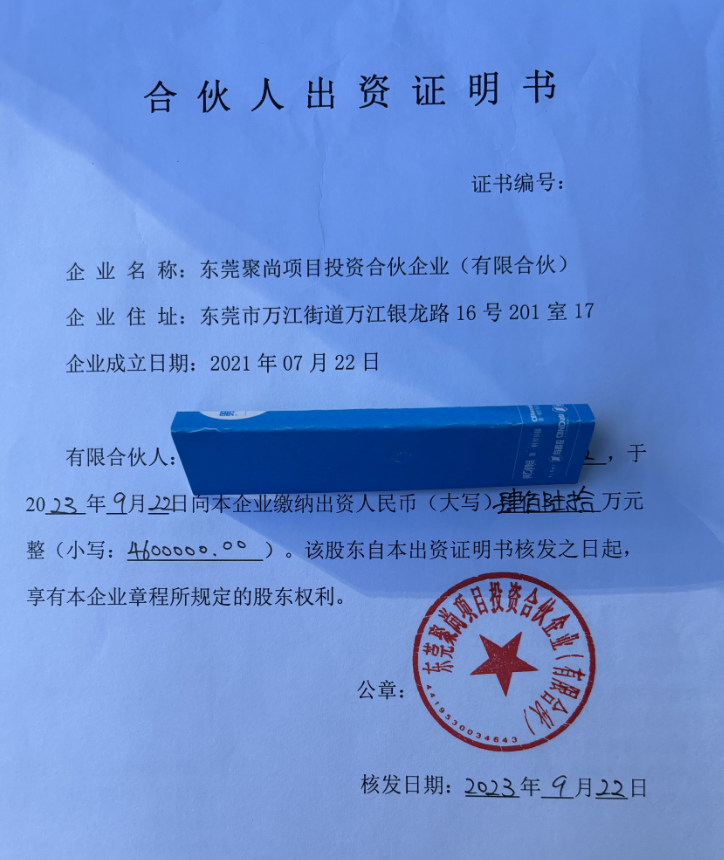 合伙人出资证明书
证书编号：
企业名称：东莞聚尚项目投资合伙企业（有限合伙）
企业住址：东莞市万江街道万江银龙路16号201室17
企业成立日期：2021年07月22日
有限合伙人：
，于
2023年9月22日向本企业缴纳出资人民币（大写）肆佰陆拾万元
整（小写：4600000.00）。该股东自本出资证明书核发之日起，
享有本企业章程所规定的股东权利。
东莞聚尚项目投资合伙企业（有限合伙）
4419530034643
公章：
核发日期：2023年9月22日